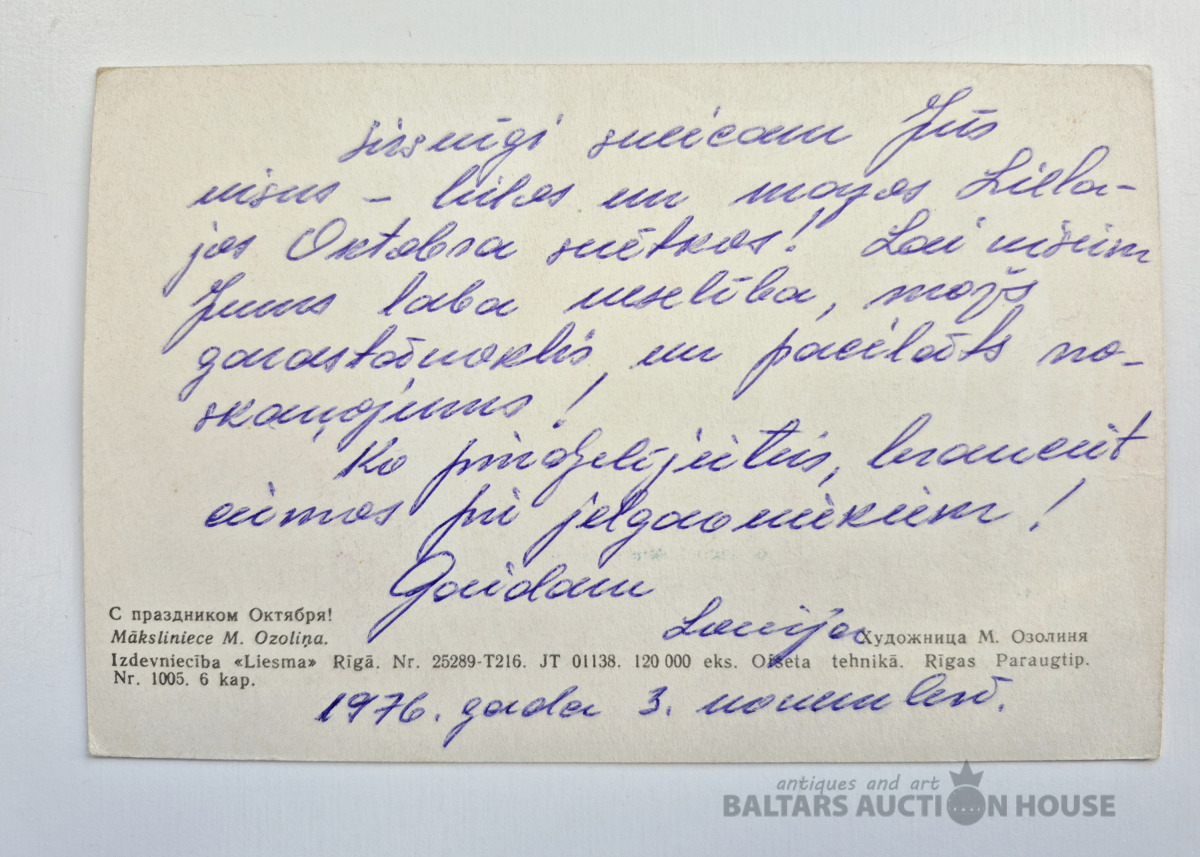 Sirsnīgi sveicam Jūs
visus – lielos un mazos Liela-
jos Oktobra svētkos! Lai visiem
Jums laba veselība, možs
garastāvoklis un pacilāts no-
skaņojums!
Ko brauciet
ciemos pie jelgavniekiem!
Gaidām
С праздником Октября!
Māksliniece M. Ozoliņa.
Художница М. Озолиня
Izdevniecība «Liesma» Rīgā. Nr. 25289-T216. JT 01138. 120 000 eks. Ofseta tehnikā. Rīgas Paraugtip.
Nr. 1005. 6 kap.
1976. gada 3. novembrī.
antiques and art
BALTARS AUCTION HOUSE